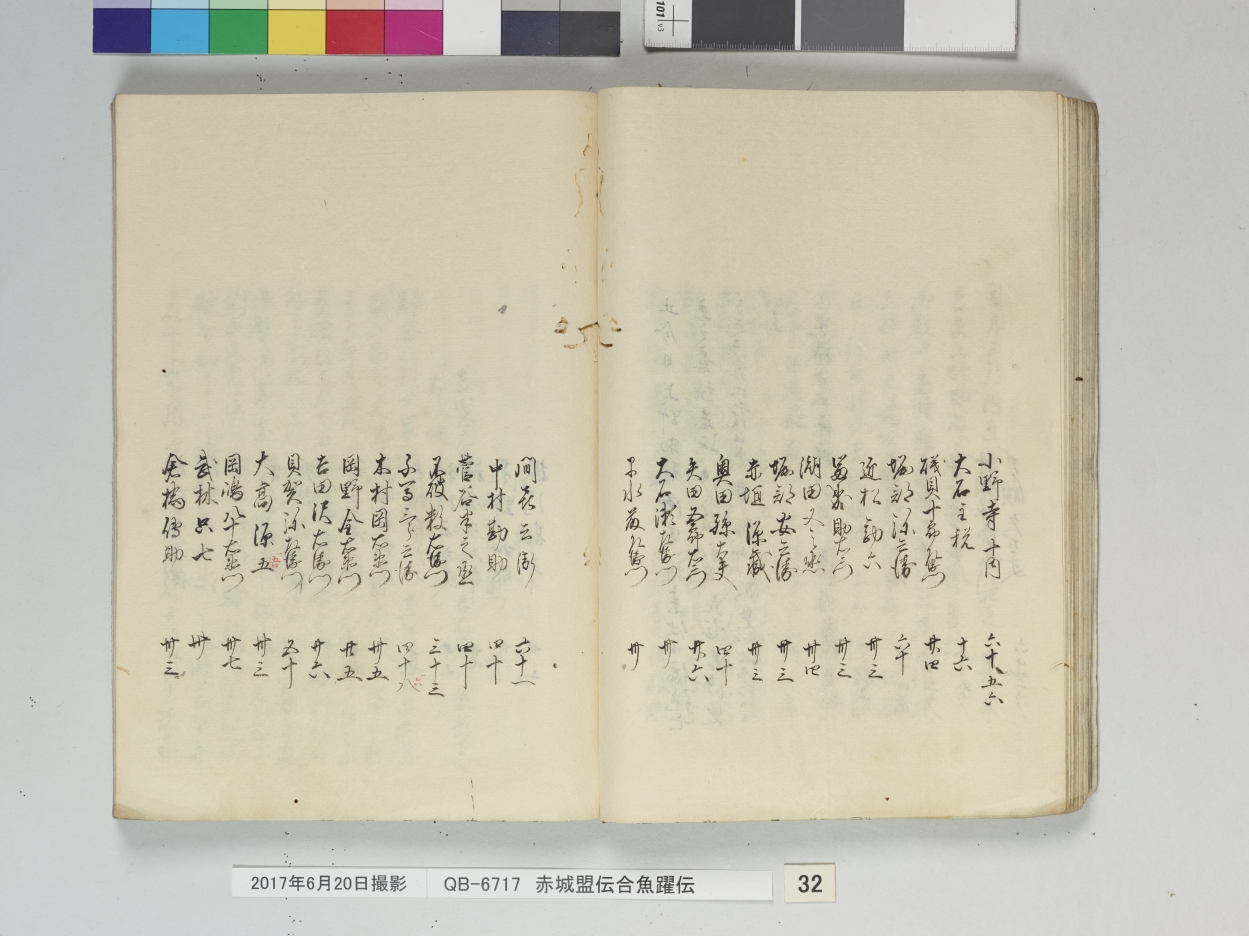 小野寺十内 六十五六
大石主税 十六
礒貝十郎左衛門 廿四
堀部弥兵衛 六十
近松勘六 卅三
冨森助右衛門 卅三
潮田又之丞 卅四
堀部安兵衛 卅三
赤垣源蔵 卅三
奥田孫太夫 四十
矢田五郎右衛門 廿六
大石瀬左衛門 卅
早水藤左衛門 卅
間喜兵衛 六十一
中村勘助 四十
菅谷半之丞 四十
不破数右衛門 三十三
千馬三郎兵衛 四十八 六
木村岡右衛門 卅五
岡野金右衛門 廿五
吉田沢右衛門 廿六
貝賀弥左衛門 五十
大高源五 吾 卅三
岡嶋八十右衛門 卅七
武林只七 卅
倉橋傳助 卅三
2017年6月20日撮影 QB-6717 赤城盟伝合魚躍伝 32
101 v3